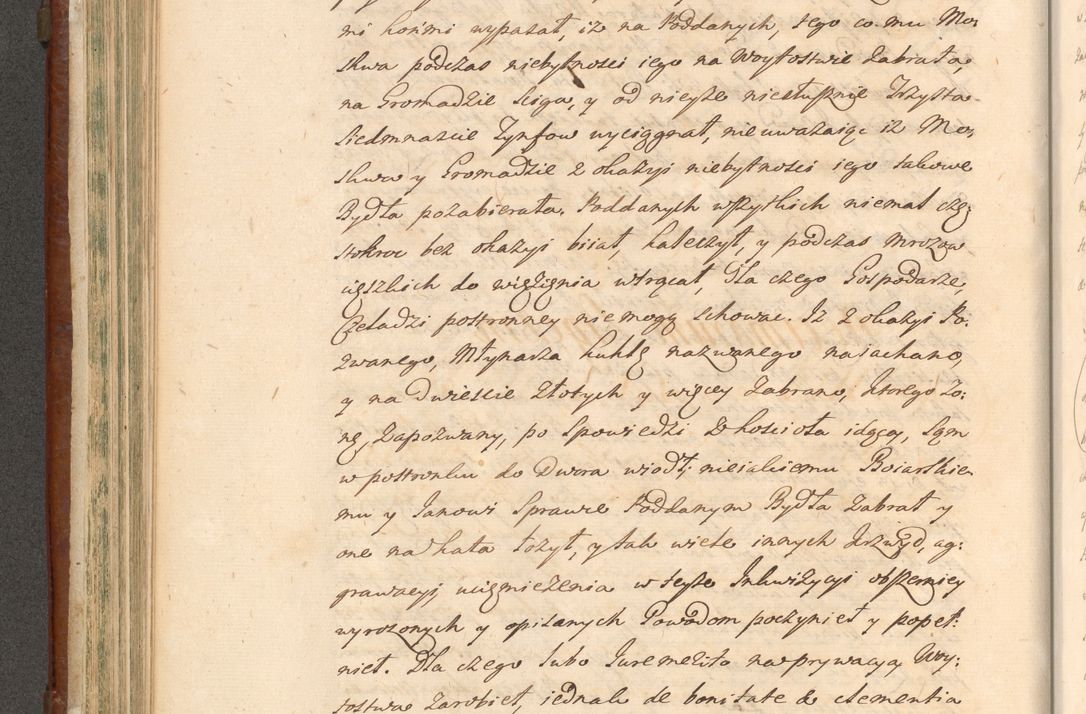 ni końmi wypasał, iż na Poddanych, tego co mu Mo:
skwa podczas niebytnosci iego na Woytostwie Zabrała,
na Gromadzie sciga, y od nieyże niesłusznie Trzysta
siedmnascie Tynfow wyciągnął, nie uważaiąc iż Mo:
skwa y Gromadzie z okazyi niebytności iego takowe
Bydła pozabierała. Poddanych wszystkich niemal czę:
stokroc bez okazyi biiał, kaleczył, y podczas mrozow
cięszkich do więzienia wtrącał, Dla czego Gospodarze,
Czeladzi postronney nie mogą schować. Iż z okazyi Po:
zwanego, Młynarza Kuklę nazwanego naiachano,
y na Dwiescie Złotych y więcey Zabrano, Ktorego Zo:
nę, Zapozwany, po Spowiedzi z Kościoła idącą, Sam
w postronku do Dwora wiodł. nieiakiemu Boiarskie
mu y Janowi Sprawie Poddanym Bydła Zabrał y
one na kata łożył, y tak wiele innych Krzywd, ag:
grawacyi, uciemiężenia w teyże Inkwizycyi obszerniey
wyrożonych y opisanych Powodom poczynieł y popeł:
nieł. Dla czego lubo Iure merito na prywacyą Woy:
tostwa Zarobieł, iednak de bonitate & clementia